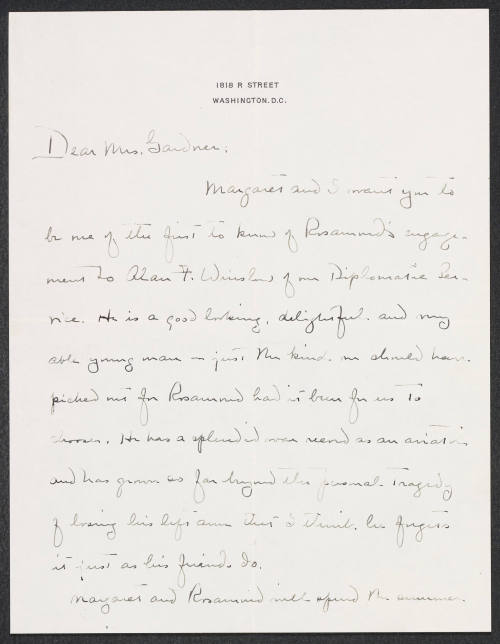 1818 R STREET
WASHINGTON, D.C.
Dear Mrs. Gardner:
Margaret and I want you to
be one of the first to know of Rosamond's engage-
ment to Alan F. Winslow of our Diplomatic Ser-
vice. He is a good looking, delightful and very
able young man — just the kind we should have
picked out for Rosamond had it been for us to
choose. He has a splendid war record as an aviator
and has grown so far beyond the personal tragedy
of losing his left arm that I think he forgets
it just as his friends do.
Margaret and Rosamond will spend the summer